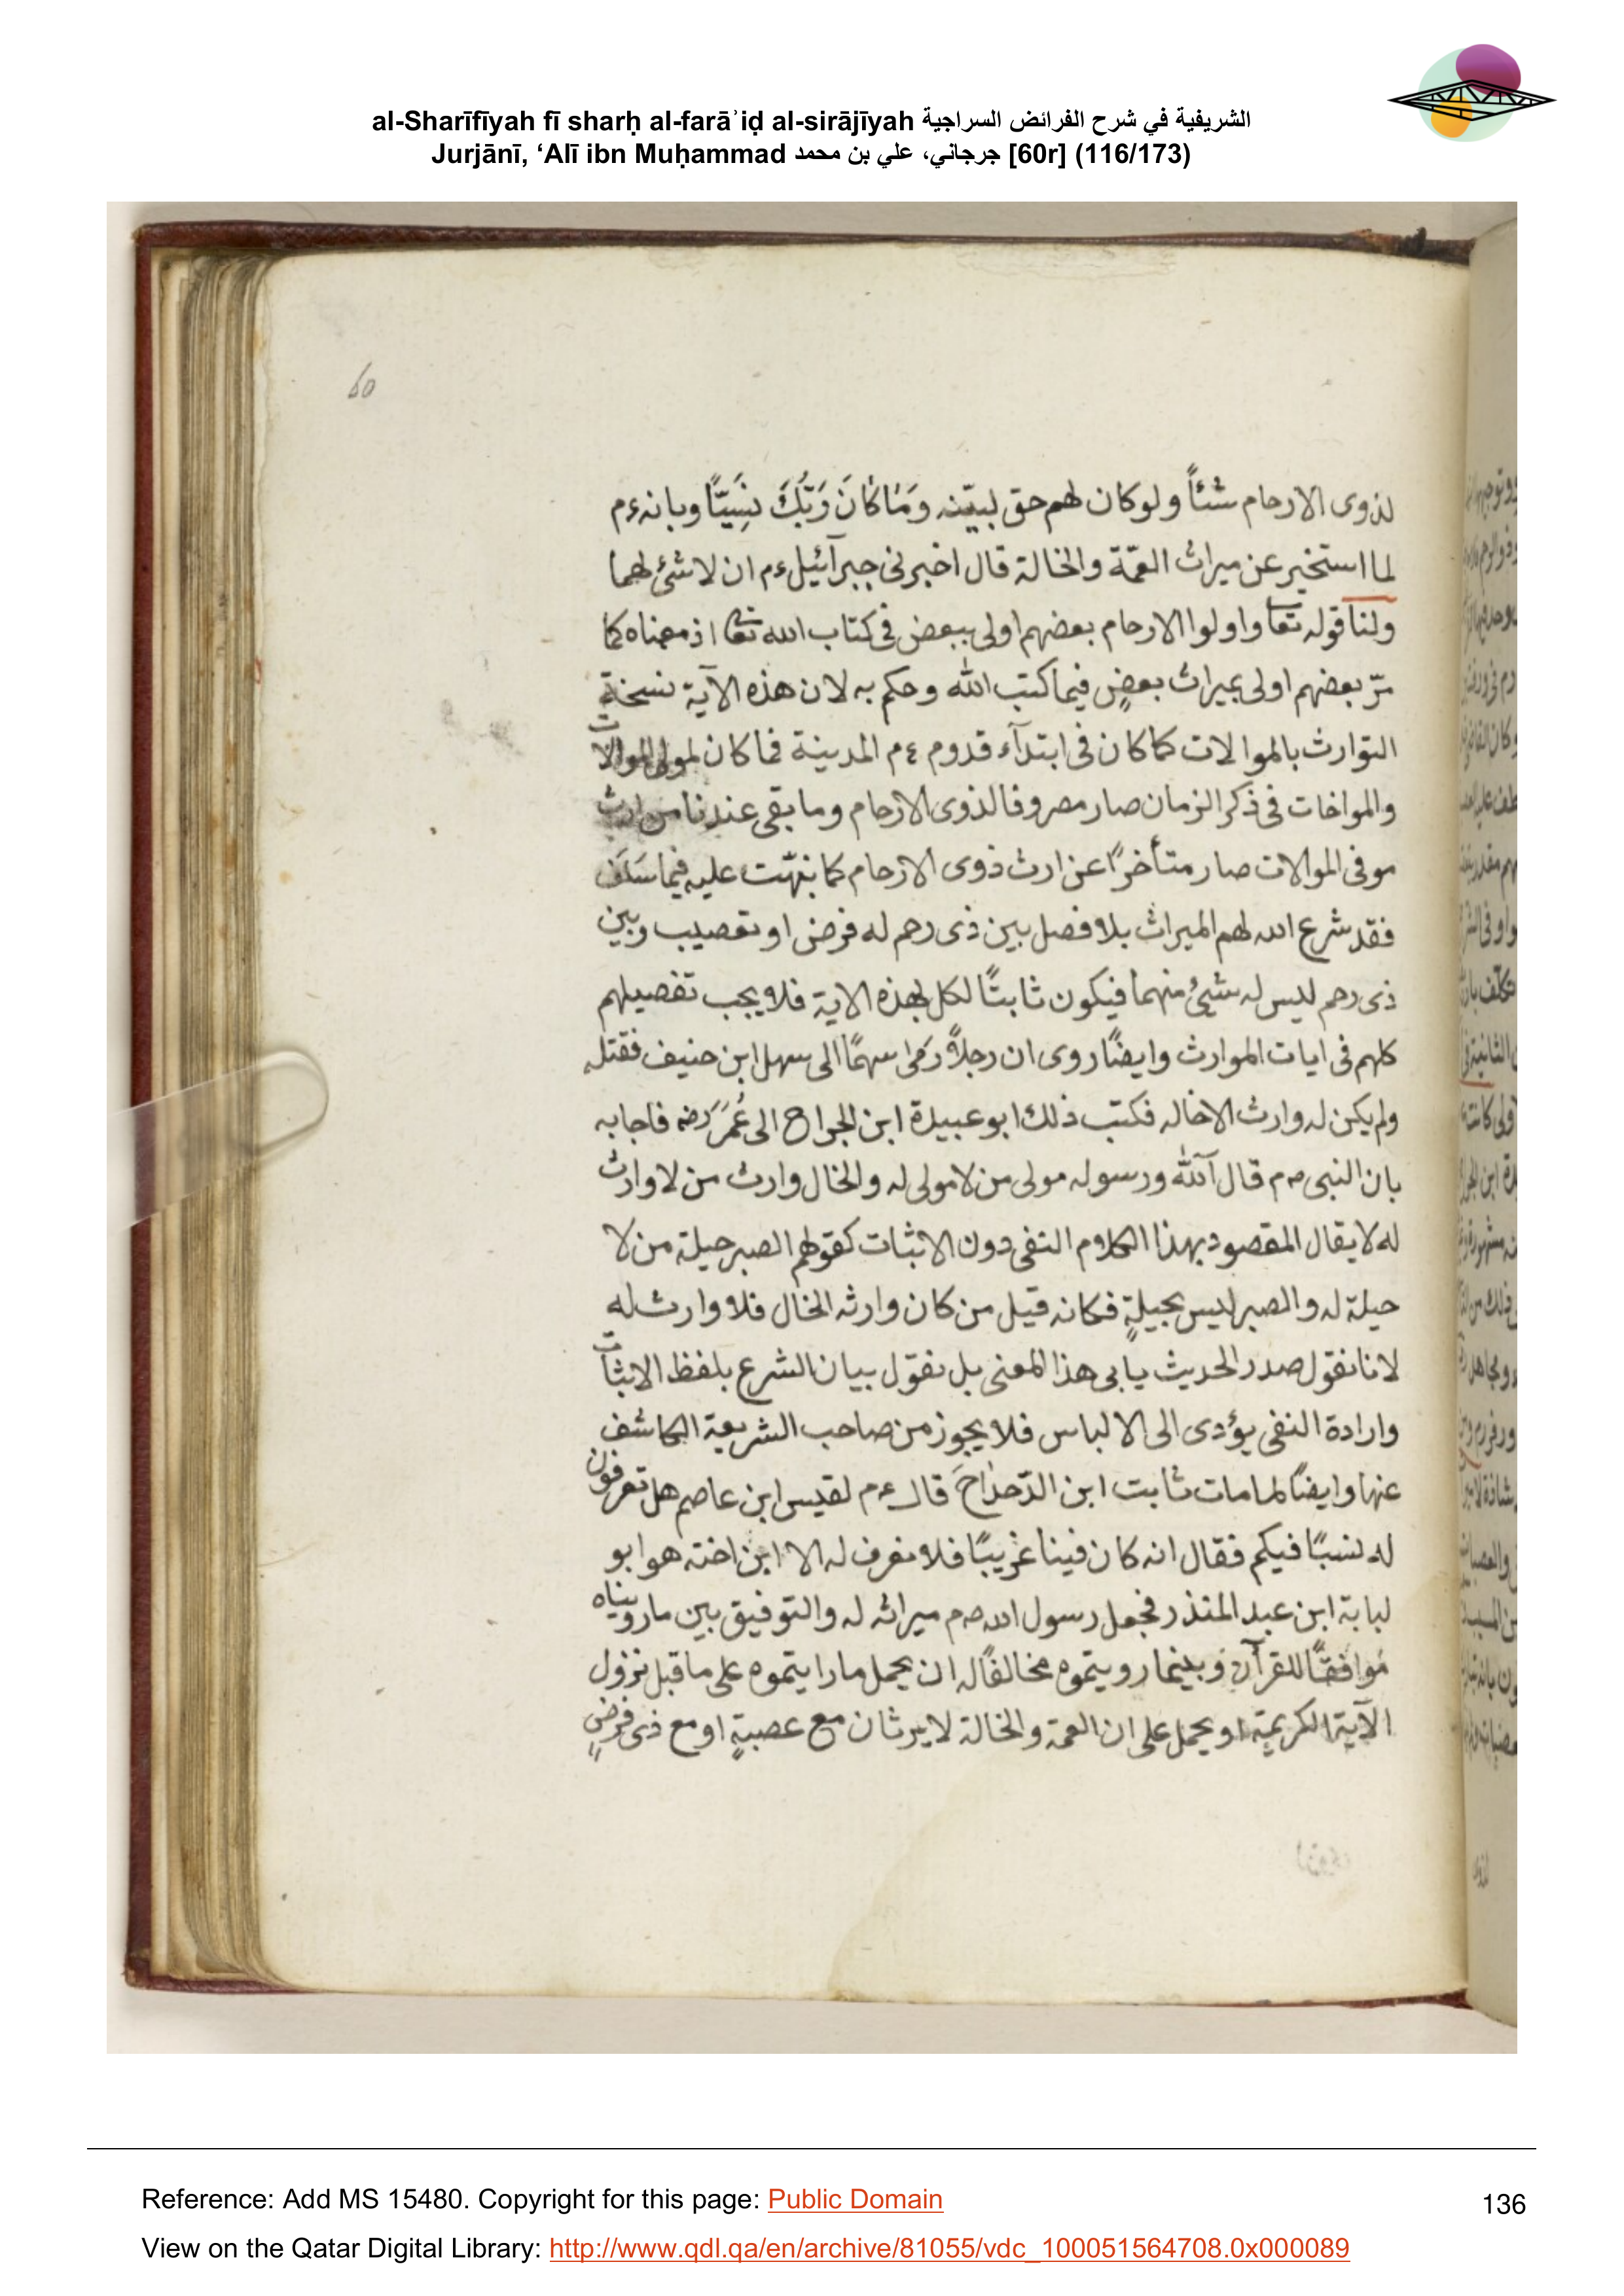 al-Sharīfīyah fī sharḥ al-farāʾiḍ al-sirājīyah الشريفية في شرح الفرائض السراجية
Jurjānī, ‘Alī ibn Muḥammad جرجاني، علي بن محمد [60r] (116/173)
60
لذوى الارحام شئاً ولو كان لهم حق لبيّنه وَمَا كَانَ رَبُّكَ نَسِيًّا وبانه ءم
لما استخبر عن ميراث العمّة والخالة قال اخبرنى جبرآئيل ءم ان لا شئ لهما
ولنا قوله تعا واولوا الارحام بعضهم اولى ببعض فى كتاب الله تعا اذ معناه كما
مرّ بعضهم اولى بميراث بعضٍ فيما كتب الله وحكم به لان هذه الآية نسخة
التوارث بالموالات كما كان فى ابتدآء قدوم ءم المدينة فما كان لمولى الموالات
والمواخات فى ذكر الزمان صار مصروفا لذوى الارحام وما بقى عندنا من ارث
موفى الموالات صار متأخرًا عن ارث ذوى الارحام كما نبّهت عليه فيما سَلَفَ
فقد شرع الله لهم الميراث بلا فصل بين ذى رحم له فرض او تعصيب وبين
ذى رحم ليس له شيئ منهما فيكون ثابتًا لكل بهذه الاية فلا يجب تفصيلهم
كلهم فى ايات الموارث وايضًا روى ان رجلاً رَمَى سهمًا الى سهل ابن حنيف فقتله
ولم يكن له وارث الاخاله فكتب ذلك ابو عبيدة ابن الجراح الى عُمَرَ رضه فاجابه
بان النبى صم قال آلله ورسوله مولى من لا مولى له والخال وارث من لا وارث
له لا يقال المقصود بهذا الكلام النفى دون الاثبات كقولهم الصبر حيلة من لا
حيلة له والصبر ليس بحيلةٍ فكانه قيل من كان وارثه الخال فلا وارث له
لانا نقول صدر الحديث يابى هذا المعنى بل نقول بيان الشرع بلفظ الاثبات
وارادة النفى يؤدى الى الالباس فلا يجوز من صاحب الشريعة الكاشف
عنها وايضًا لما مات ثابت ابن الدّحدَاحَ قال ءم لقيس ابن عاصم هل تعرفون
له نسبًا فيكم فقال انه كان فينا غريبًا فلا نعرف له الا ابن اخته هو ابو
لبابة ابن عبد المنذر فجعل رسول الله صم ميراثه له والتوفيق بين ما رويناه
مُوافقًا للقرآن وبينما رويتموه مخالفًا له ان يحمل ما رايتموه على ما قبل نزول
الآية الكريمة او يحمل على ان العمة والخالة لا يرثان مع عصبةٍ او مع ذى فرضٍ
Reference: Add MS 15480. Copyright for this page: Public Domain
136
View on the Qatar Digital Library: http://www.qdl.qa/en/archive/81055/vdc_100051564708.0x000089